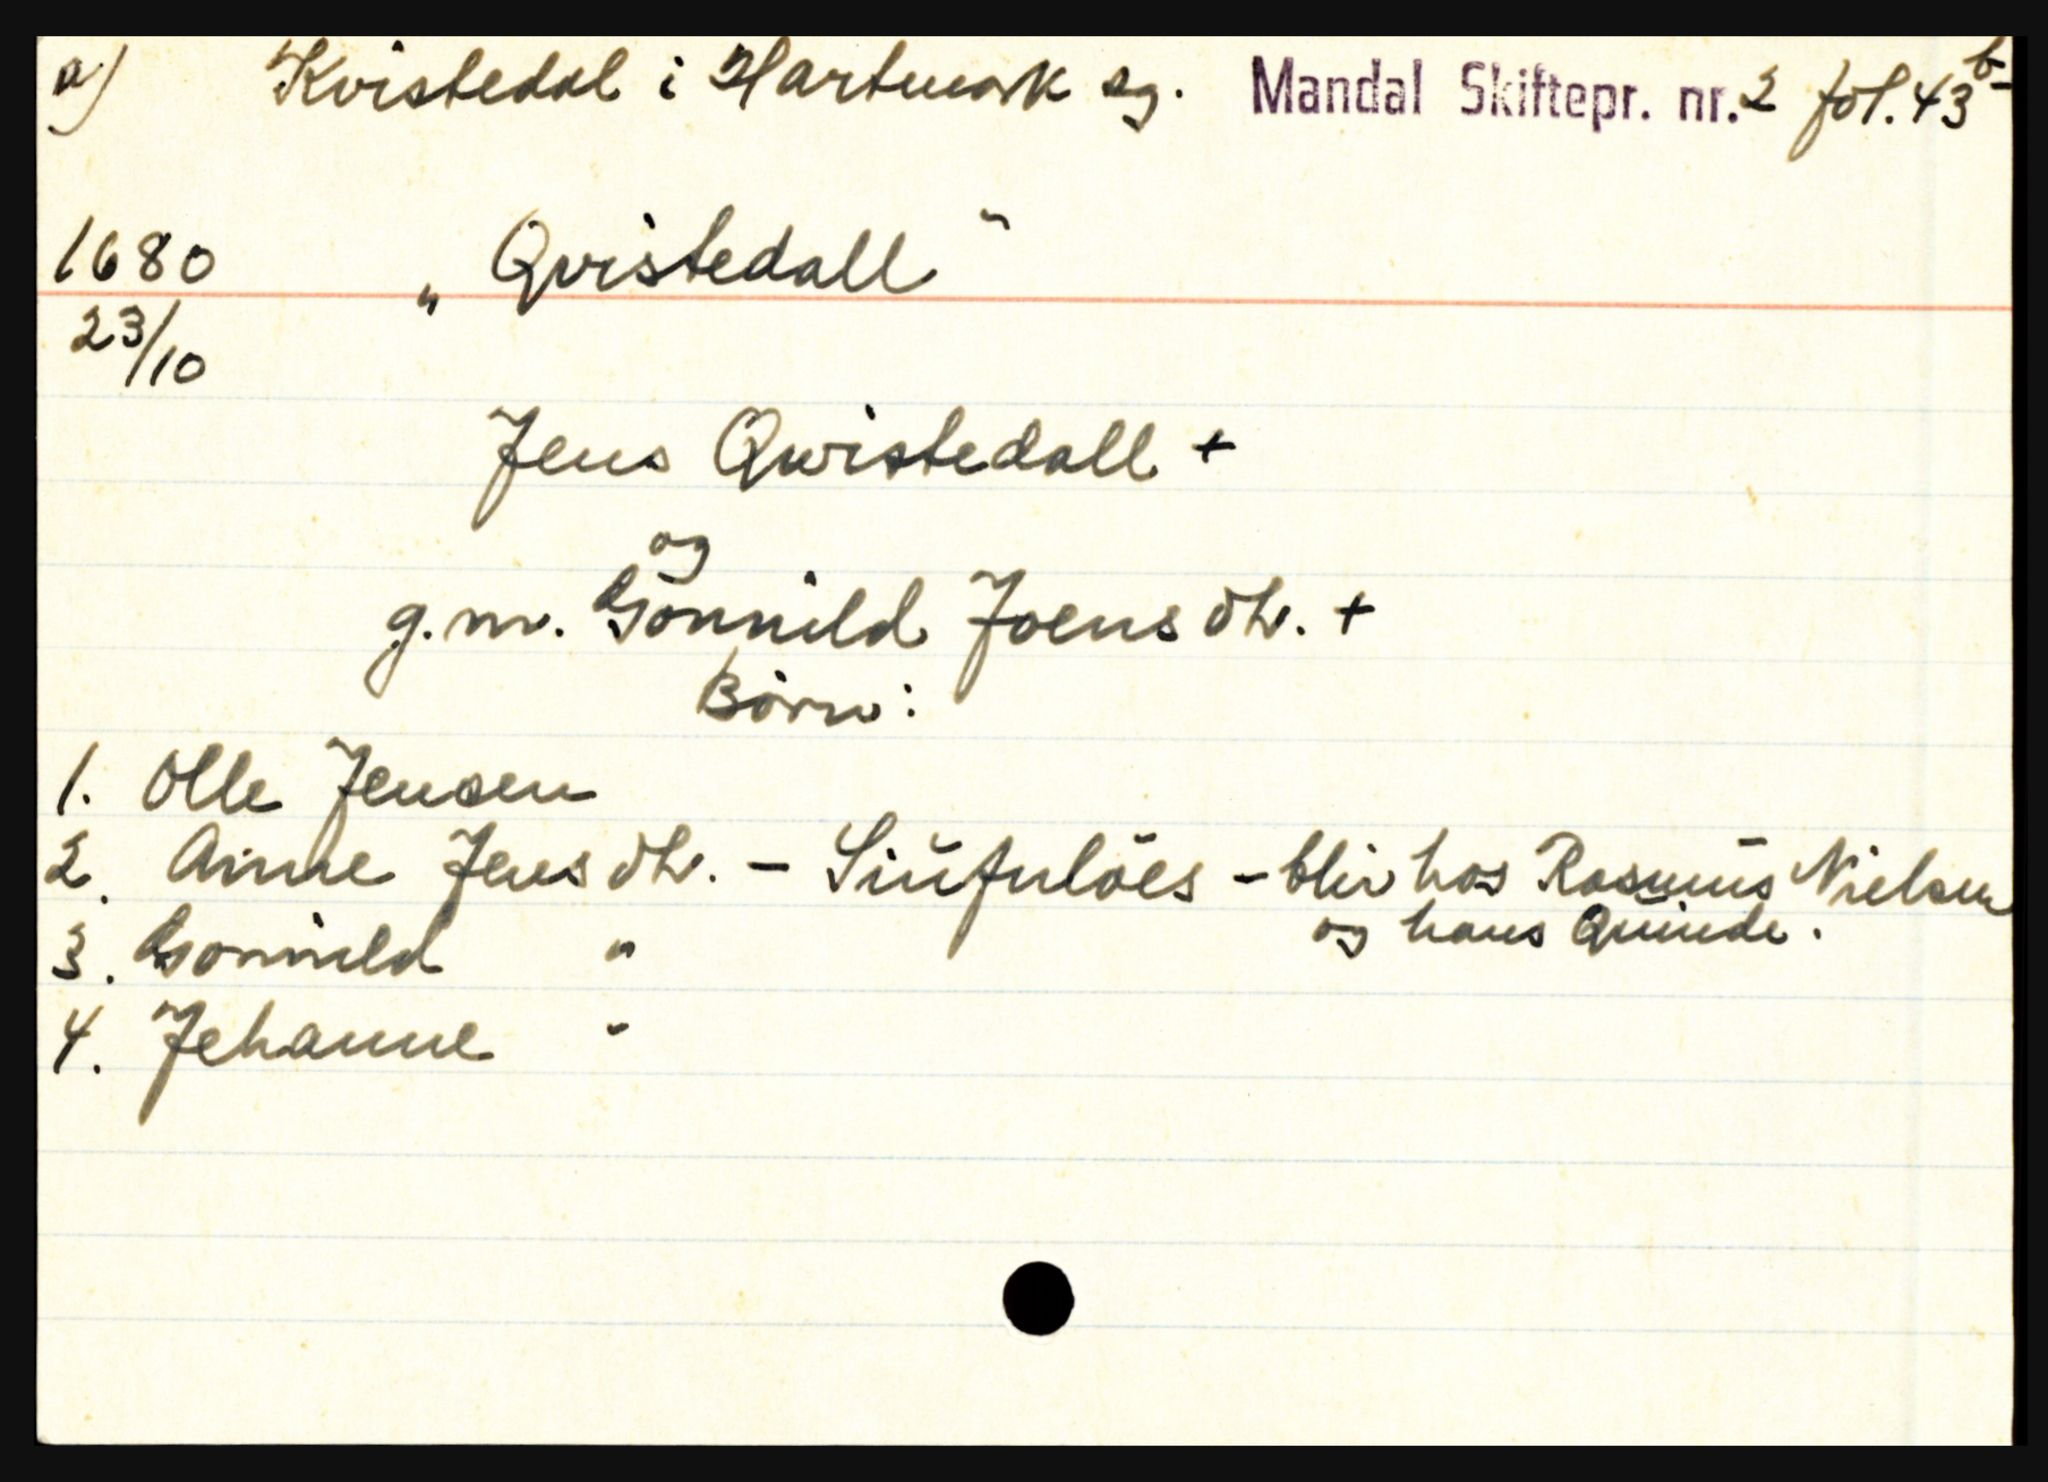 a) Kvistedal i Hartmark sg. Mandal Skiftepr. nr. 2 fol. 43b-
1680 „Qvistedall"
23/10
Jens Qwistedall +
og
g.m. Gonnild Joens dtr. +
Børn:
1. Olle Jensen
2. Anne Jens dtr. - - blir hos Rasmŭs Nielsen
og hans Quinde.
3. Gonnild "
4. Jehanne "